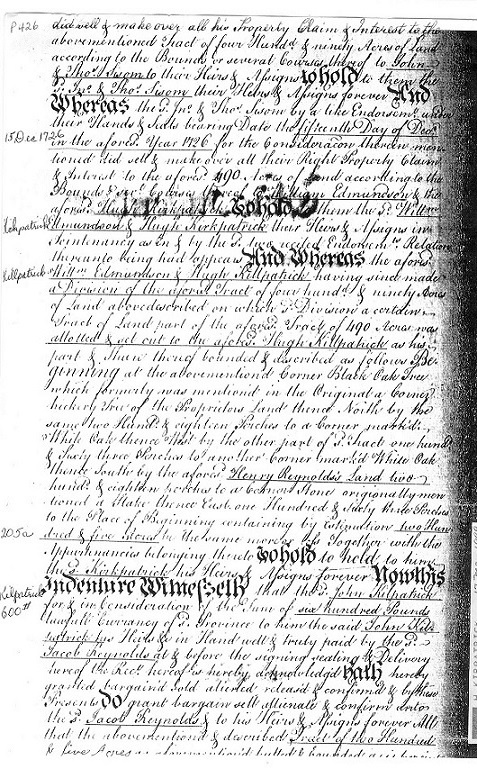 P 426
did sell & make over all his Property Claim & Interest to the
abovementioned Tract of four Hund.d & ninety Acres of Land
according to the Bounds & several Courses thereof to John
& Tho.s Sisom to their Heirs & Assigns to hold to them the
s.d Jn.o & Tho.s Sisom their Heirs & Assigns forever And
Whereas the s.d Jn.o & Tho.s Sisom by a like Endorsem.t under
their Hands & Seals bearing Date the fifteenth Day of Dec.r
15 Dec 1726
in the afores.d Year 1726 for the Consideracon therein men
tioned did sell & make over all their Right Property Claim
& Interest to the afores.d 490 Acres of Land according to the
Bounds & Courses thereof William Edmundson & the
afores.d Hugh Kirkpatrick to hold to them the s.d Will.m
Kirkpatrick
Edmundson & Hugh Kirkpatrick their Heirs & Assigns in
Jointenancy as in & by the s.d recited Endorsem.ts Relation
thereunto being had appears And Whereas the afores.d
Killpatrick
Will.m Edmundson & Hugh Killpatrick having since made
a Division of the afores.d Tract of four hund.d & ninety Acres
of Land abovedescribed on which s.d Division a certain
Tract of Land part of the afores.d Tract of 490 Acres was
allotted & set out to the afores.d Hugh Killpatrick as his
part & Share thereof bounded & described as follows Be
ginning at the abovementioned Corner Black Oak Tree
which formerly was mentioned in the Original a Corner
heckery Tree of the Proprietors Land thence North by the
same two Hund.d & eighteen Perches to a Corner mark'd
White Oak thence West by the other part of s.d Tract one hund.d
& Sixty three Perches to another Corner mark'd White Oak
thence South by the afores.d Henry Reynolds's Land two
hund.d & eighteen perches to a Corner Stone origionally men
tioned a Stake thence East one Hundred & Sixty three Perches
to the Place of Beginning containing by Estimation two Hun
205a
dred & five Acres be the same more or less Together with the
Appurtenances belonging thereto to hold to him
the s.d Kirkpatrick his Heirs & Assigns forever Now this
Kilpatrick
Indenture Witnesseth that the s.d John Kilpatrick
600#
for & in Consideration of the Sum of six hundred Pounds
lawful Currancy of s.d Province to him the said John Kill
patrick his Heirs & in Hand well & truly paid by the s.d
Jacob Reynolds at & before the signing sealing & Delivery
hereof the Rec.t hereof is hereby acknowledg'd hath hereby
granted bargain'd Sold aliened releas'd & confirm'd & by these
Presents do grant bargain sell allienate & confirm unto
the s.d Jacob Reynolds & to his Heirs & Assigns forever All
that the abovementioned & described Tract of two Hundred
& five Acres as abovementioned butted & bounded